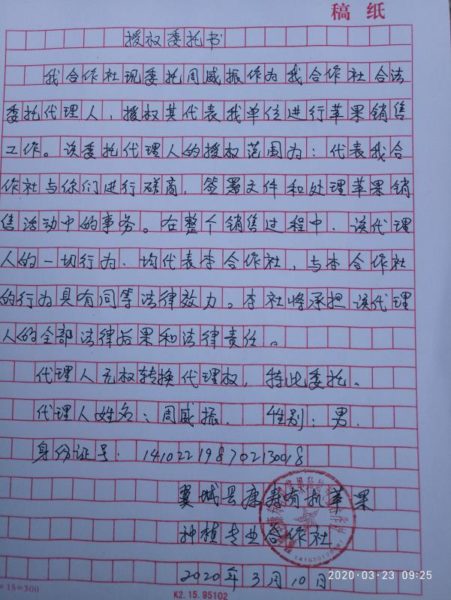 稿纸
授权委托书
我合作社现委托周威振作为我合作社合法
委托代理人，授权其代表我单位进行苹果销售
工作。该委托代理人的授权范围为：代表我合
作社与你们进行磋商，签署文件和处理苹果销
售活动中的事务。在整个销售过程中，该代理
人的一切行为，均代表本合作社，与本合作社
的行为具有同等法律效力。本社将承担该代理
人的全部法律后果和法律责任。
代理人无权转换代理权，特此委托。
代理人姓名：周威振. 性别：男.
身份证号：141022198702130018
翼城县康 有机苹果
种植专业合作社
2020年3月10日
2020-03-23 09:25
=15=300
K2.15.95102